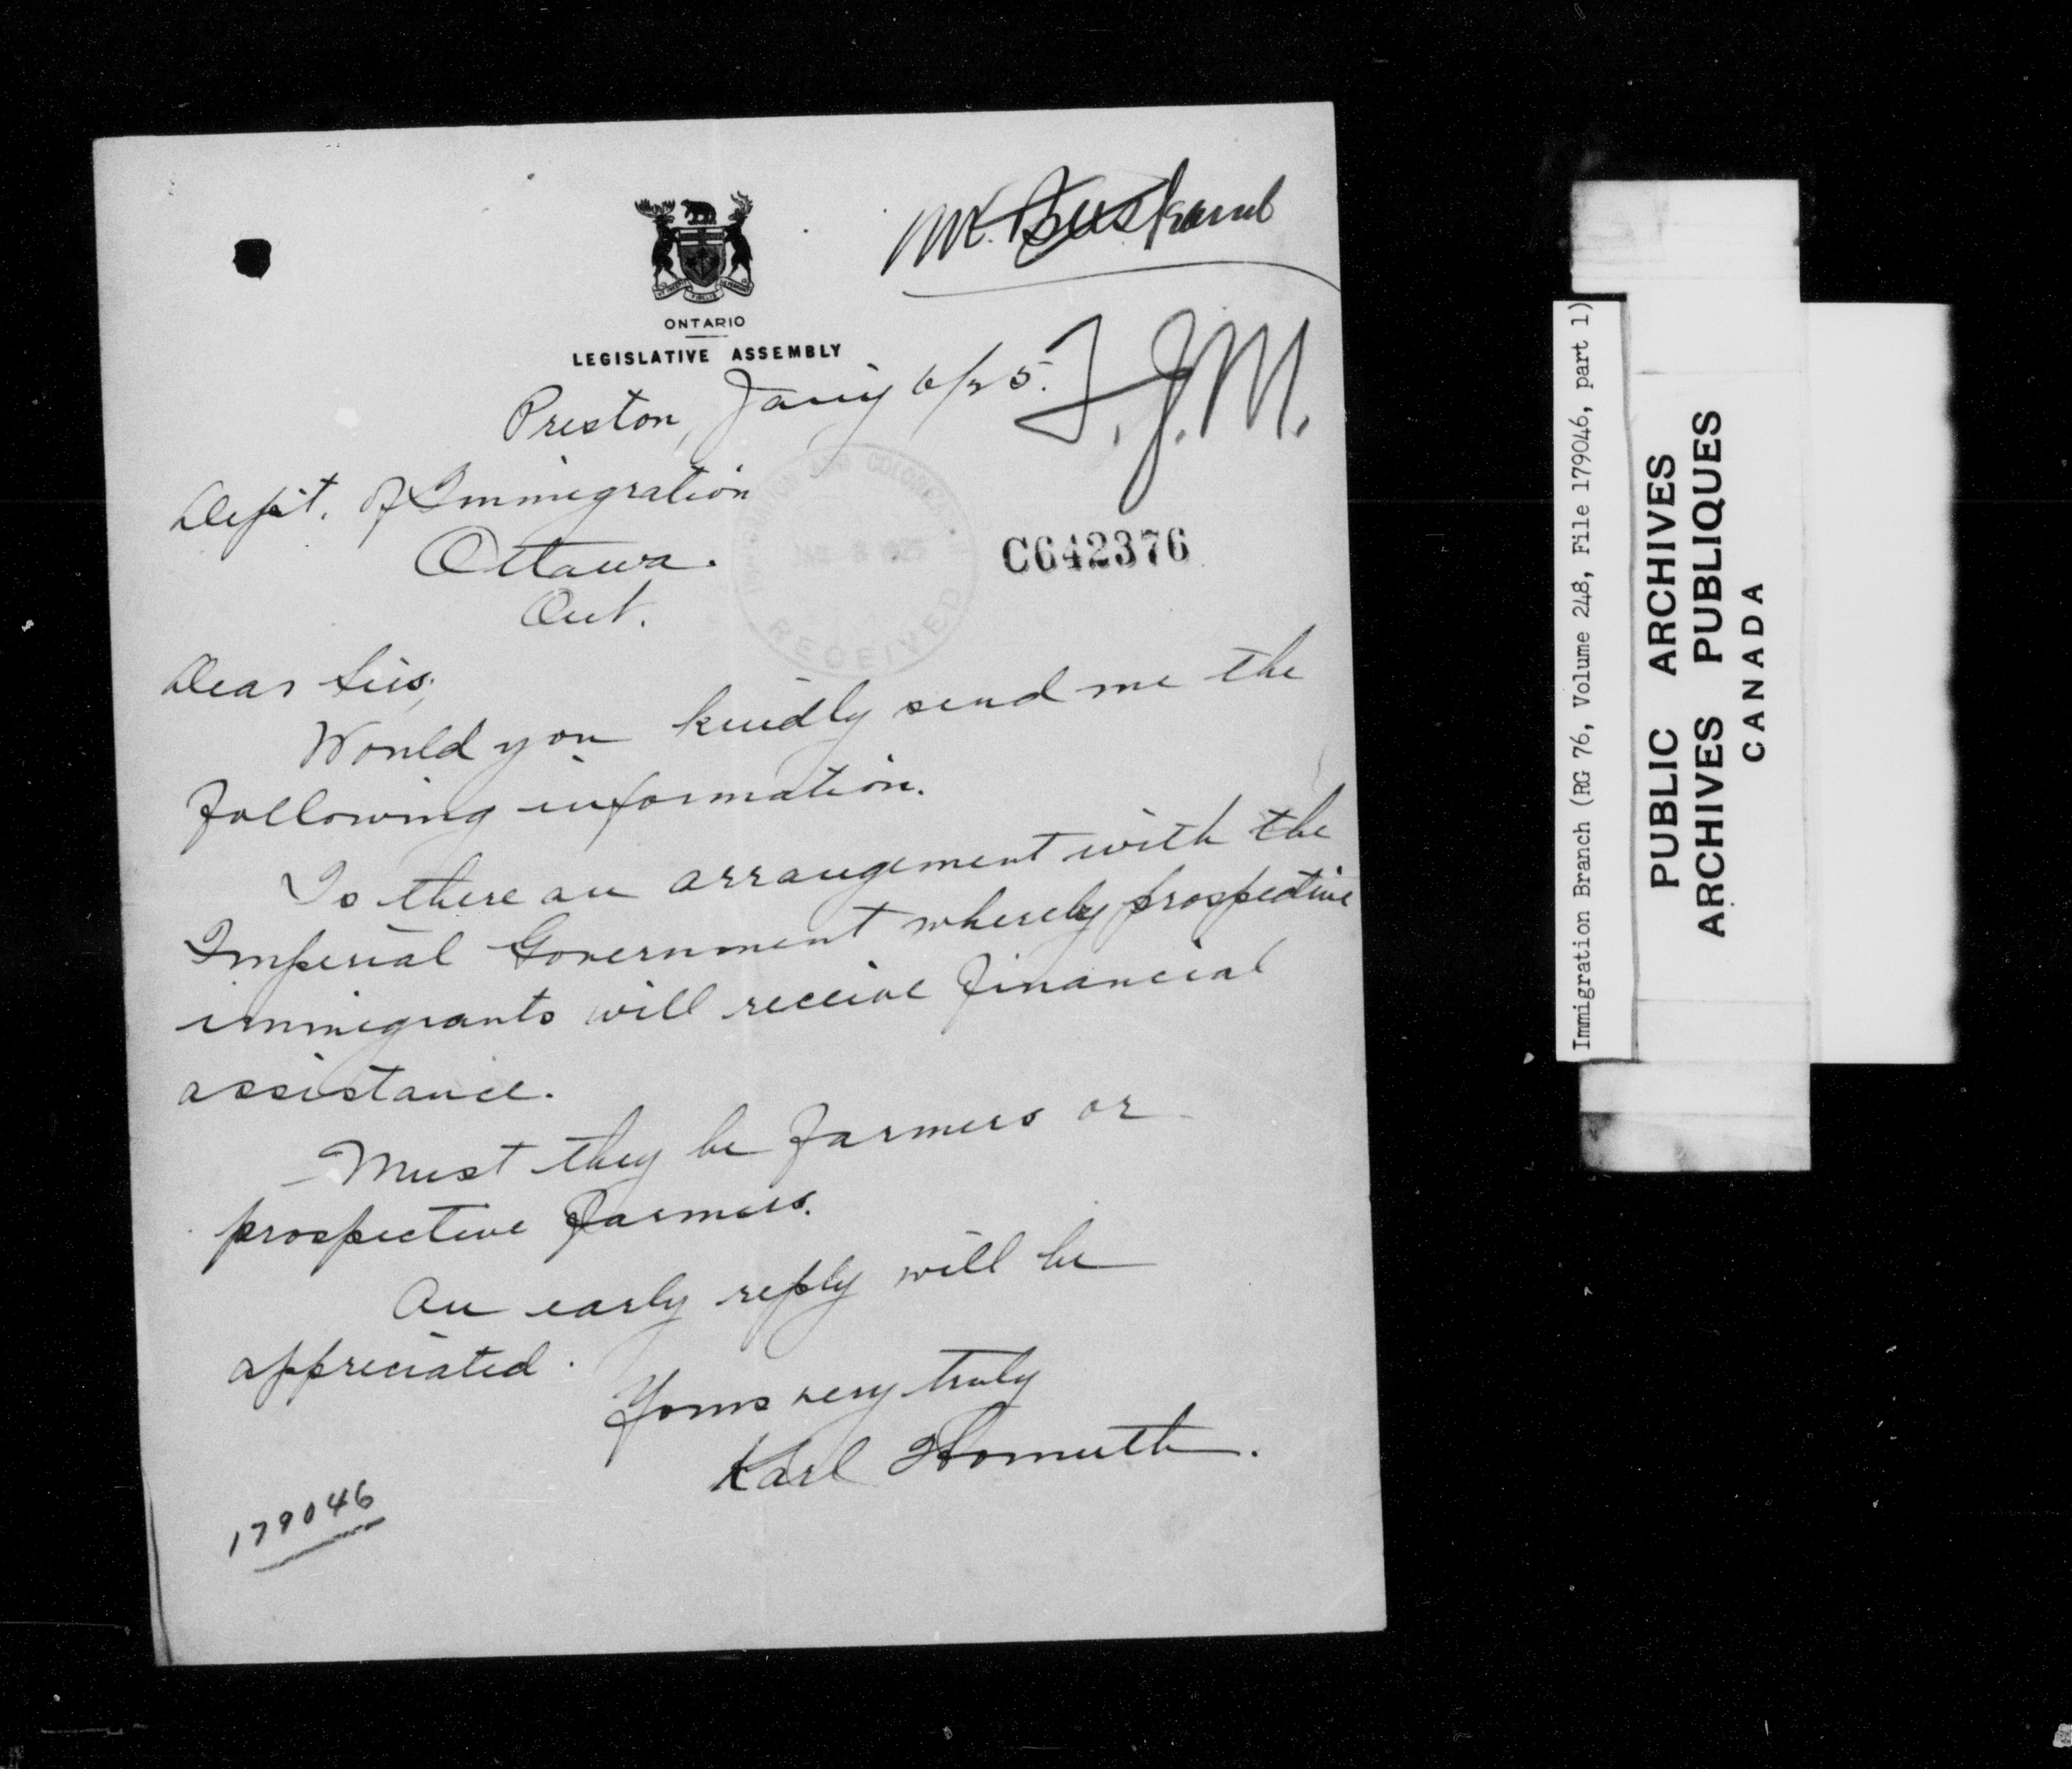 ONTARIO
LEGISLATIVE ASSEMBLY
Mr.
F.J.M.
Preston, Jan'y 6/25.
Dep't. of Immigration
Ottawa.
Ont.
IMMIGRATION AND COLONIZ
JAN 8 1925
RECEIVED
C642376
Dear Sirs;
Would you kindly send me the
following information.
Is there an arrangement with the
Imperial Government whereby prospective
immigrants will receive financial
assistance.
Must they be farmers or
prospective farmers.
An early reply will be
appreciated.
Yours very truly
Karl Homuth.
179046
Immigration Branch (RG 76, Volume 248, File 179046, part 1)
PUBLIC ARCHIVES
ARCHIVES PUBLIQUES
CANADA